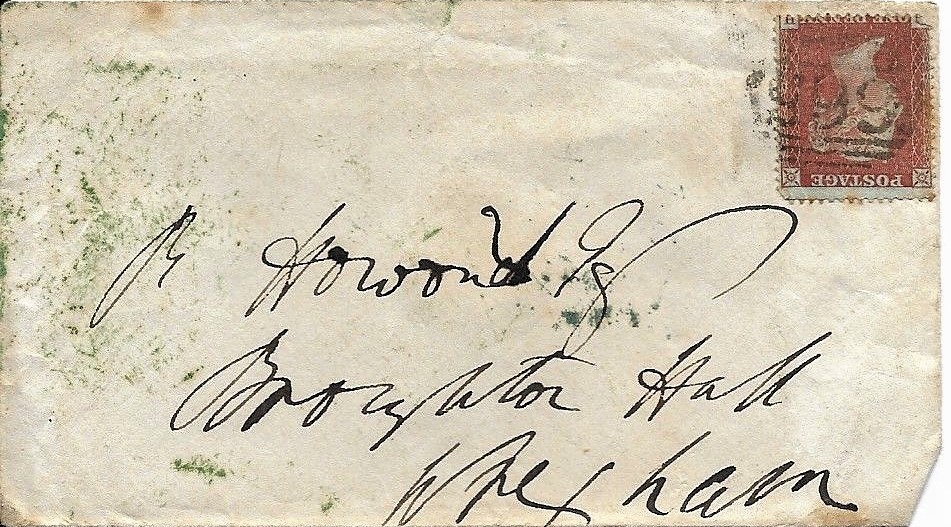 POSTAGE
R Howard Esq
Broughton Hall
Wrexham